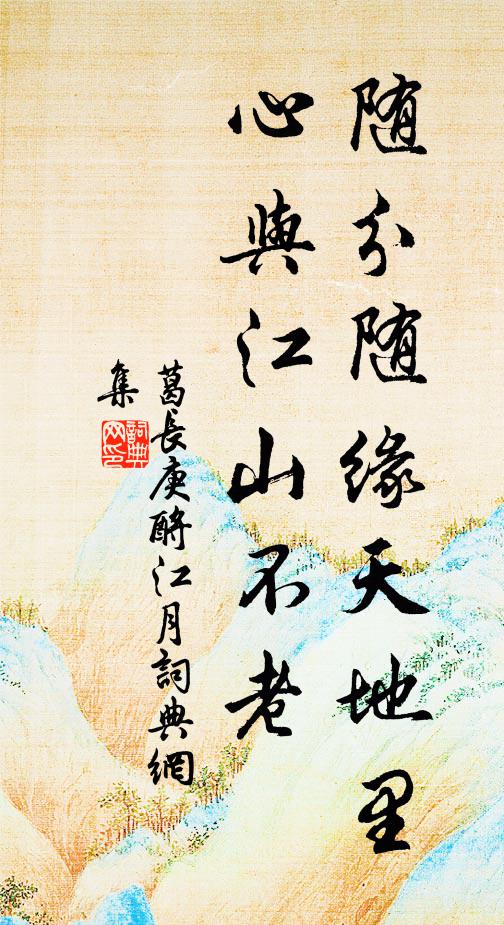 随分随缘天地里
心與江山不老
葛長庚酹江月詞典網
集
詞典
网印